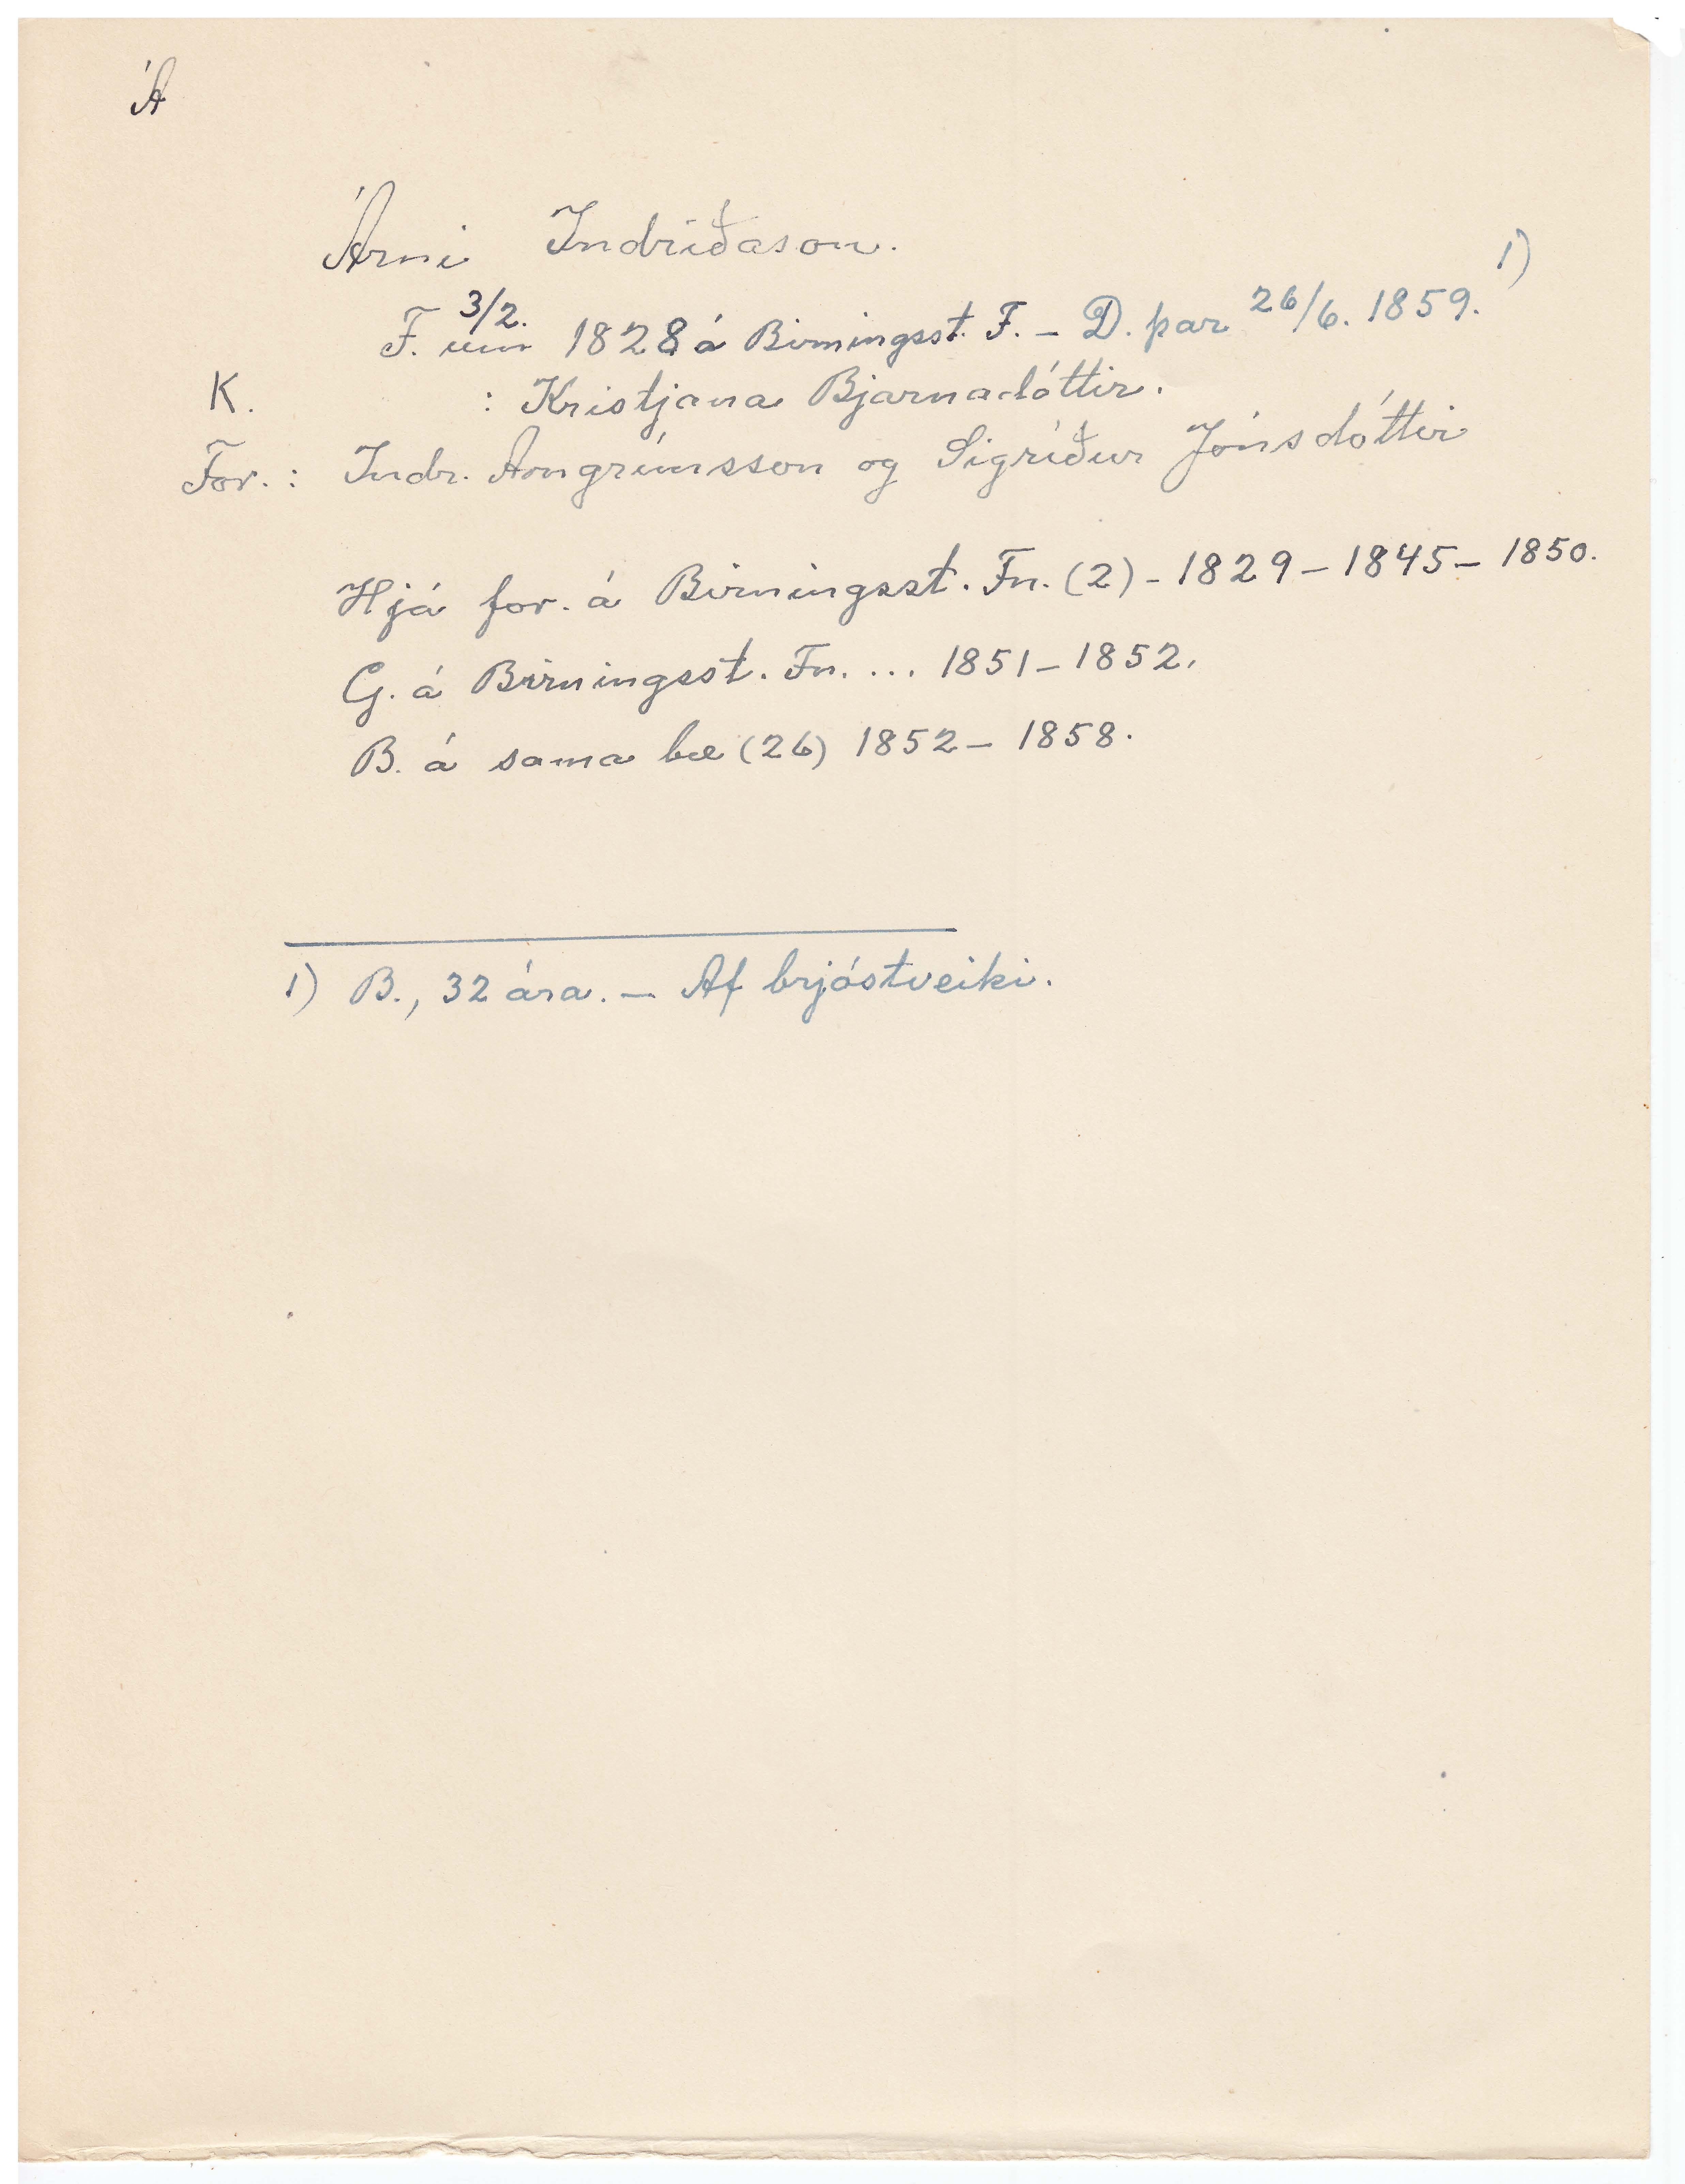 Á
Árni Indriðason.
F. um 3/2. 1828 á Birningsst. F. – D. þar 26/6. 1859. 1)
K. : Kristjana Bjarnadóttir.
For. : Indr. Arngrímsson og Sigríður Jónsdóttir
Hjá for. á Birningsst. Fn. (2) - 1829 – 1845 – 1850.
G. á Birningsst. Fn. ... 1851 – 1852.
B. á sama bæ (26) 1852 – 1858.
1) B., 32 ára. – Af brjóstveiki.